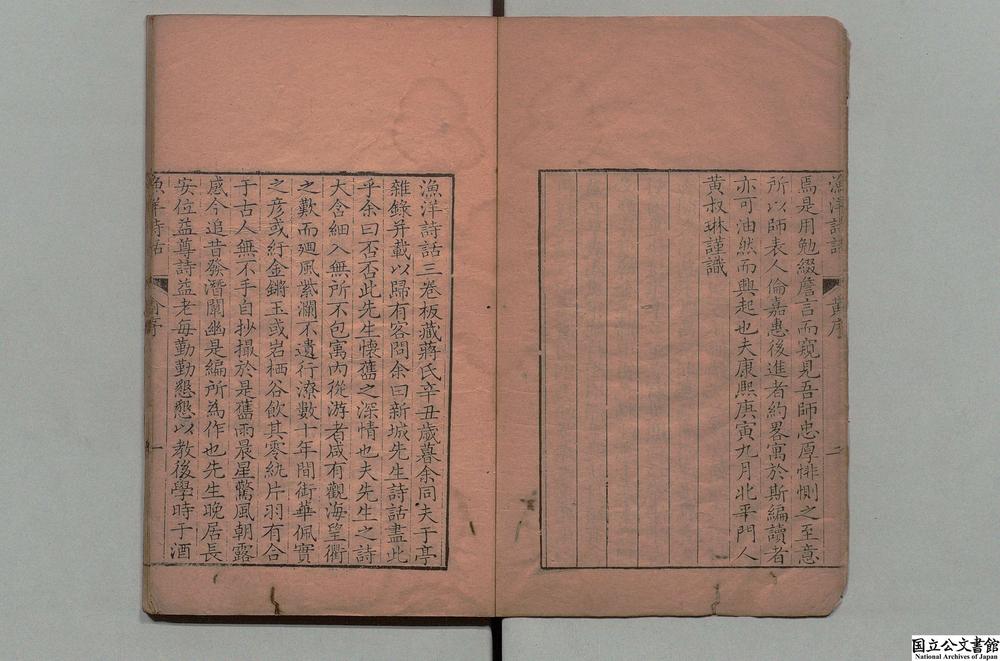 漁洋詩話
黃序
二
焉是用勉綴詹言而窺見吾師忠厚悱惻之至意
所以師表人倫嘉惠後進者約畧寓於斯編讀者
亦可油然而興起也夫康熙庚寅九月北平門人
黃叔琳謹識
漁洋詩話三卷板藏蔣氏辛丑歲暮余同夫于亭
雜錄并載以歸有客問余曰新城先生詩話盡此
乎余曰否否此先生懷舊之深情也夫先生之詩
大含細入無所不包寓內從游者咸有觀海望衢
之歎而廻風紫瀾不遺行潦數十年間銜華佩實
之彥或紆金鏘玉或岩栖谷飲其零紈片羽有合
于古人無不手自抄撮於是舊雨晨星驚風朝露
感今追昔發潛闡幽是編所為作也先生晚居長
安位益尊詩益老每勤勤懇懇以教後學時于酒
漁洋詩話
俞序
一
国立公文書館
National Archives of Japan